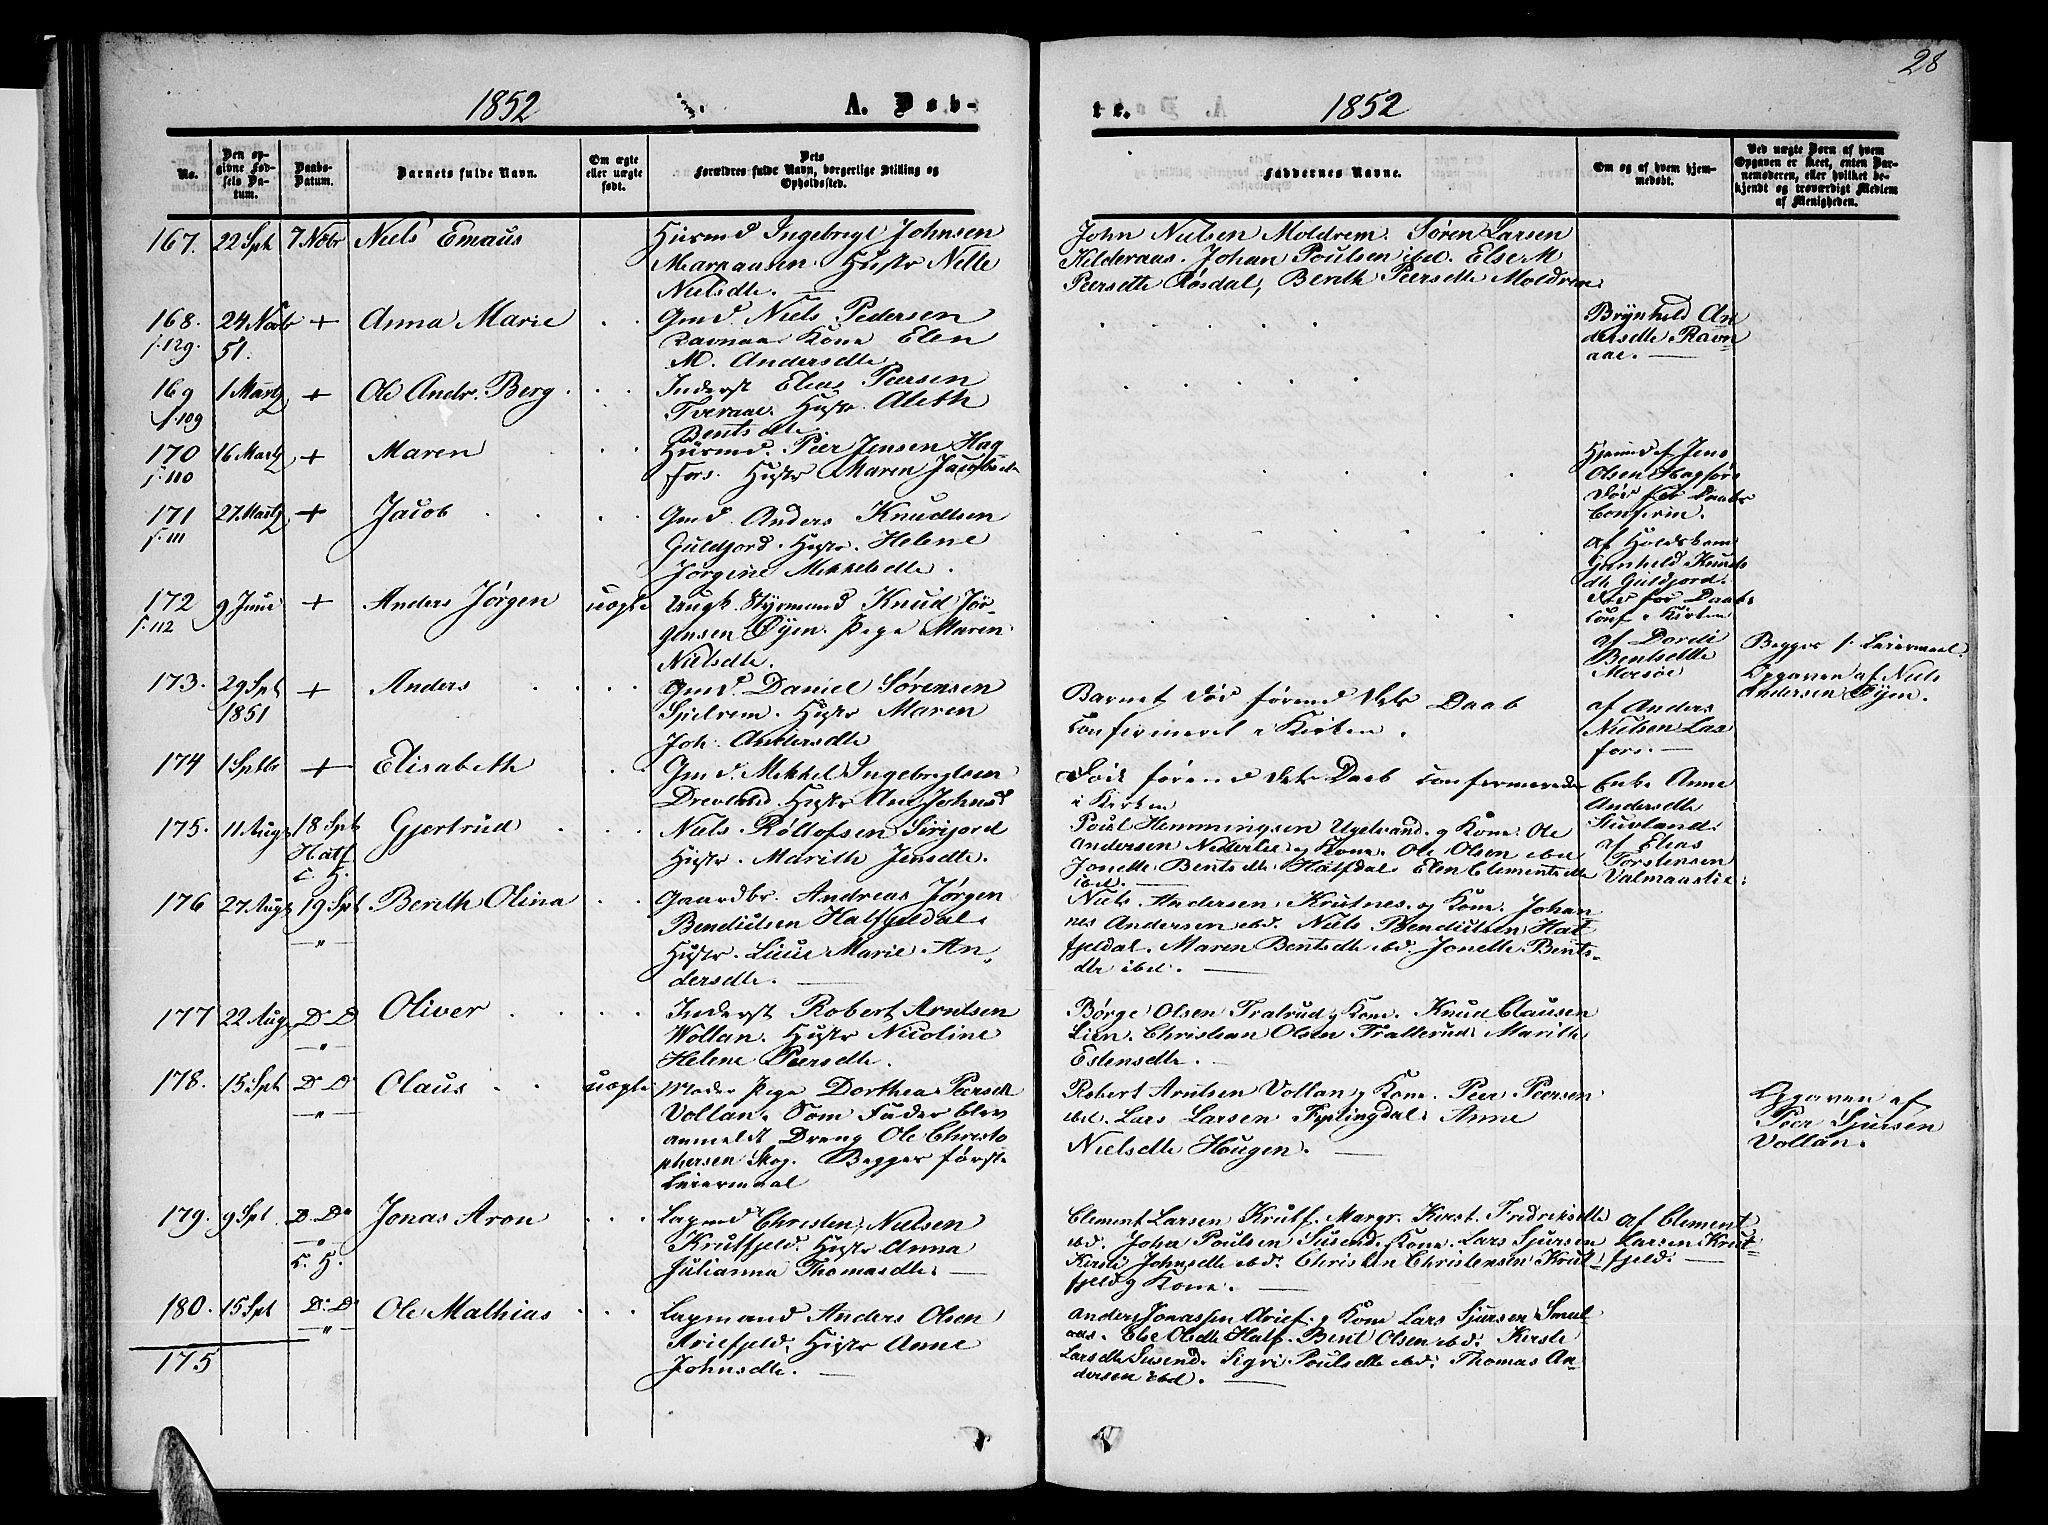 28
1852
A. Døb-
te.
1852
No.
Den op-
givne Fød-
sels Da-
tum.
Daabs-
Datum.
Barnets fulde Navn.
Om ægte
eller uægte
født.
Dets
Forældres fulde Navn, borgerlige Stilling og
Opholdssted.
Faddernes Navne.
Om og af hvem hjem-
medøbt.
Ved uægte Børn af hvem
Opgaven er skeet, enten Bar-
nemoderen, eller hvilket be-
kjendt og troværdigt Medlem
af Menigheden.
167. 22 Spt 7 Nobr Niels Emaus
Huusmd Ingebrigt Johnsen
Marhausen. Hustr Nille
Nielsdtr.
John Nielsen Moldrem. Søren Larsen
Kilderaas. Johan Poulsen ibd. Else M
Peersdtr Røsdal, Berith Peersdtr Moldrem
168. 24 Novb + Anna Marie
f. 129. 51.
Gmd. Niels Pedersen
Ravnaa. Kone Elen
M. Andersdtr
Brynhild An
dersdtr Ravn
aae.
169 1 Martz + Ole Andr. Berg
f. 109
Inderst Elias Peersen
Tveraae. Hustr. Aleth
Bentsdtr
170 16 Martz + Maren
f. 110
Huusmd. Peer Jensen Hag
fors. Hustr Maren Jacobsdtr
Hjemmd af Jens
Olsen Hagfors
Død før Daabs
Confirm.
171 27 Martz + Jacob
f. 111
Gmd. Anders Knudtsen
Guldfjord. Hustr. Helene
Jørgine Mikkelsdtr.
af
Gunhild Knuds
dtr Guldfjord.
Død før Daabs
conf i Kirken
172 9 Juni + Anders Jørgen uægte
f. 112
Ungk. Styrmand Knud Jør-
gensen Øyen. Pige Maren
Nielsdtr.
af Dordi
Bentsdtr
Mosøe
Begges 1. Leiermaal.
Opgaven af Niels
Andersen Øyen.
173. 29 Spt + Anders
1851
Gmd. Daniel Sørensen
Sjelrem. Hustr Maren
Joh. Andersdtr
Barnet død førend dets Daab
confirmeret i Kirken.
af Anders
Nielsen Lax
fors.
174 1 Septbr + Elisabeth
Gmd. Mikkel Ingebrigtsen
Drevland. Hustr Ane Johnsd
Død førend dets Daab confirmerede
i Kirken
Enke Anne
Andersdtr
Stuvland.
175. 11 Aug 18 Spt Gjertrud
Hatf
c. H.
Niels Røllofsen Sirijord
Hustr. Marith Jensdtr.
Poul Hemmingsen Ugelvand og Kone. Ole
Andersen Nederlie og Kone. Ole Olsen ibd
Jonette Bentsdtr Hatfdal. Elen Clementsdtr
ibd.
af Elias
Torstensen
Valmaaslie.
176 27 Aug 19 Spt Berith Olina
"
Gaardbr. Andreas Jørgen
Bendicksen Hatfjeldal.
Hustr. Marie An-
dersdtr.
Niels Andersen Krutnes og Kone. Johan
nes Andersen ibd. Niels Bendiktsen Hat
fjeldal. Maren Bentsdtr ibd. Jonette Bents-
dtr ibd.
177 22 Aug D. D Oliver
"
Inderst Robert Arntsen
Wollan. Hustr Nicoline
Helene Peersdtr.
Børge Olsen Tralrud og Kone. Knud Clausen
Lien. Christian Olsen Trallerud. Marith
Estensdtr.
178. 15 Spt D. D Olaus uægte
"
Moder Pige Dorthea Peersdtr
Vollan. Som Fader blev
anmeldt Dreng Ole Christo
phersen Skog. Begges første
Leiermaal
Robert Arntsen Vollan og Kone. Peer Peersen
ibd. Lars Larsen Fiplingdal. Anne
Nielsdtr Hougen.
Opgaven af
Peer Sjursen
Vollan.
179. 9 Spt D. D Jonas Aron
"
c. H.
Lapmd Christen Nielsen
Krutfjeld. Hustr Anna
Julianna Thomasdtr.
Clement Larsen Krutf. Margr. Kirst. Fridriksdtr
ibd. John Poulsen Susend. og Kone. Lars Sjursen
Kirsti Johnsdtr ibd. Christen Christensen Krut
fjeld og Kone.
af Clement
Larsen Krut
fjeld.
180. 15 Spt D. D Ole Mathias
"
Lapmand Anders Olsen
Ariefjeld. Hustr Anne
Johnsdtr.
Anders Jonassen Arief. og Kone Lars Sjursen Smul
aas. Else Olsdtr Hatf. Bent Olsen ibd. Kirsti
Larsdtr Susend. Sigri Poulsdtr ibd. Thomas An
dersen ibd.
175